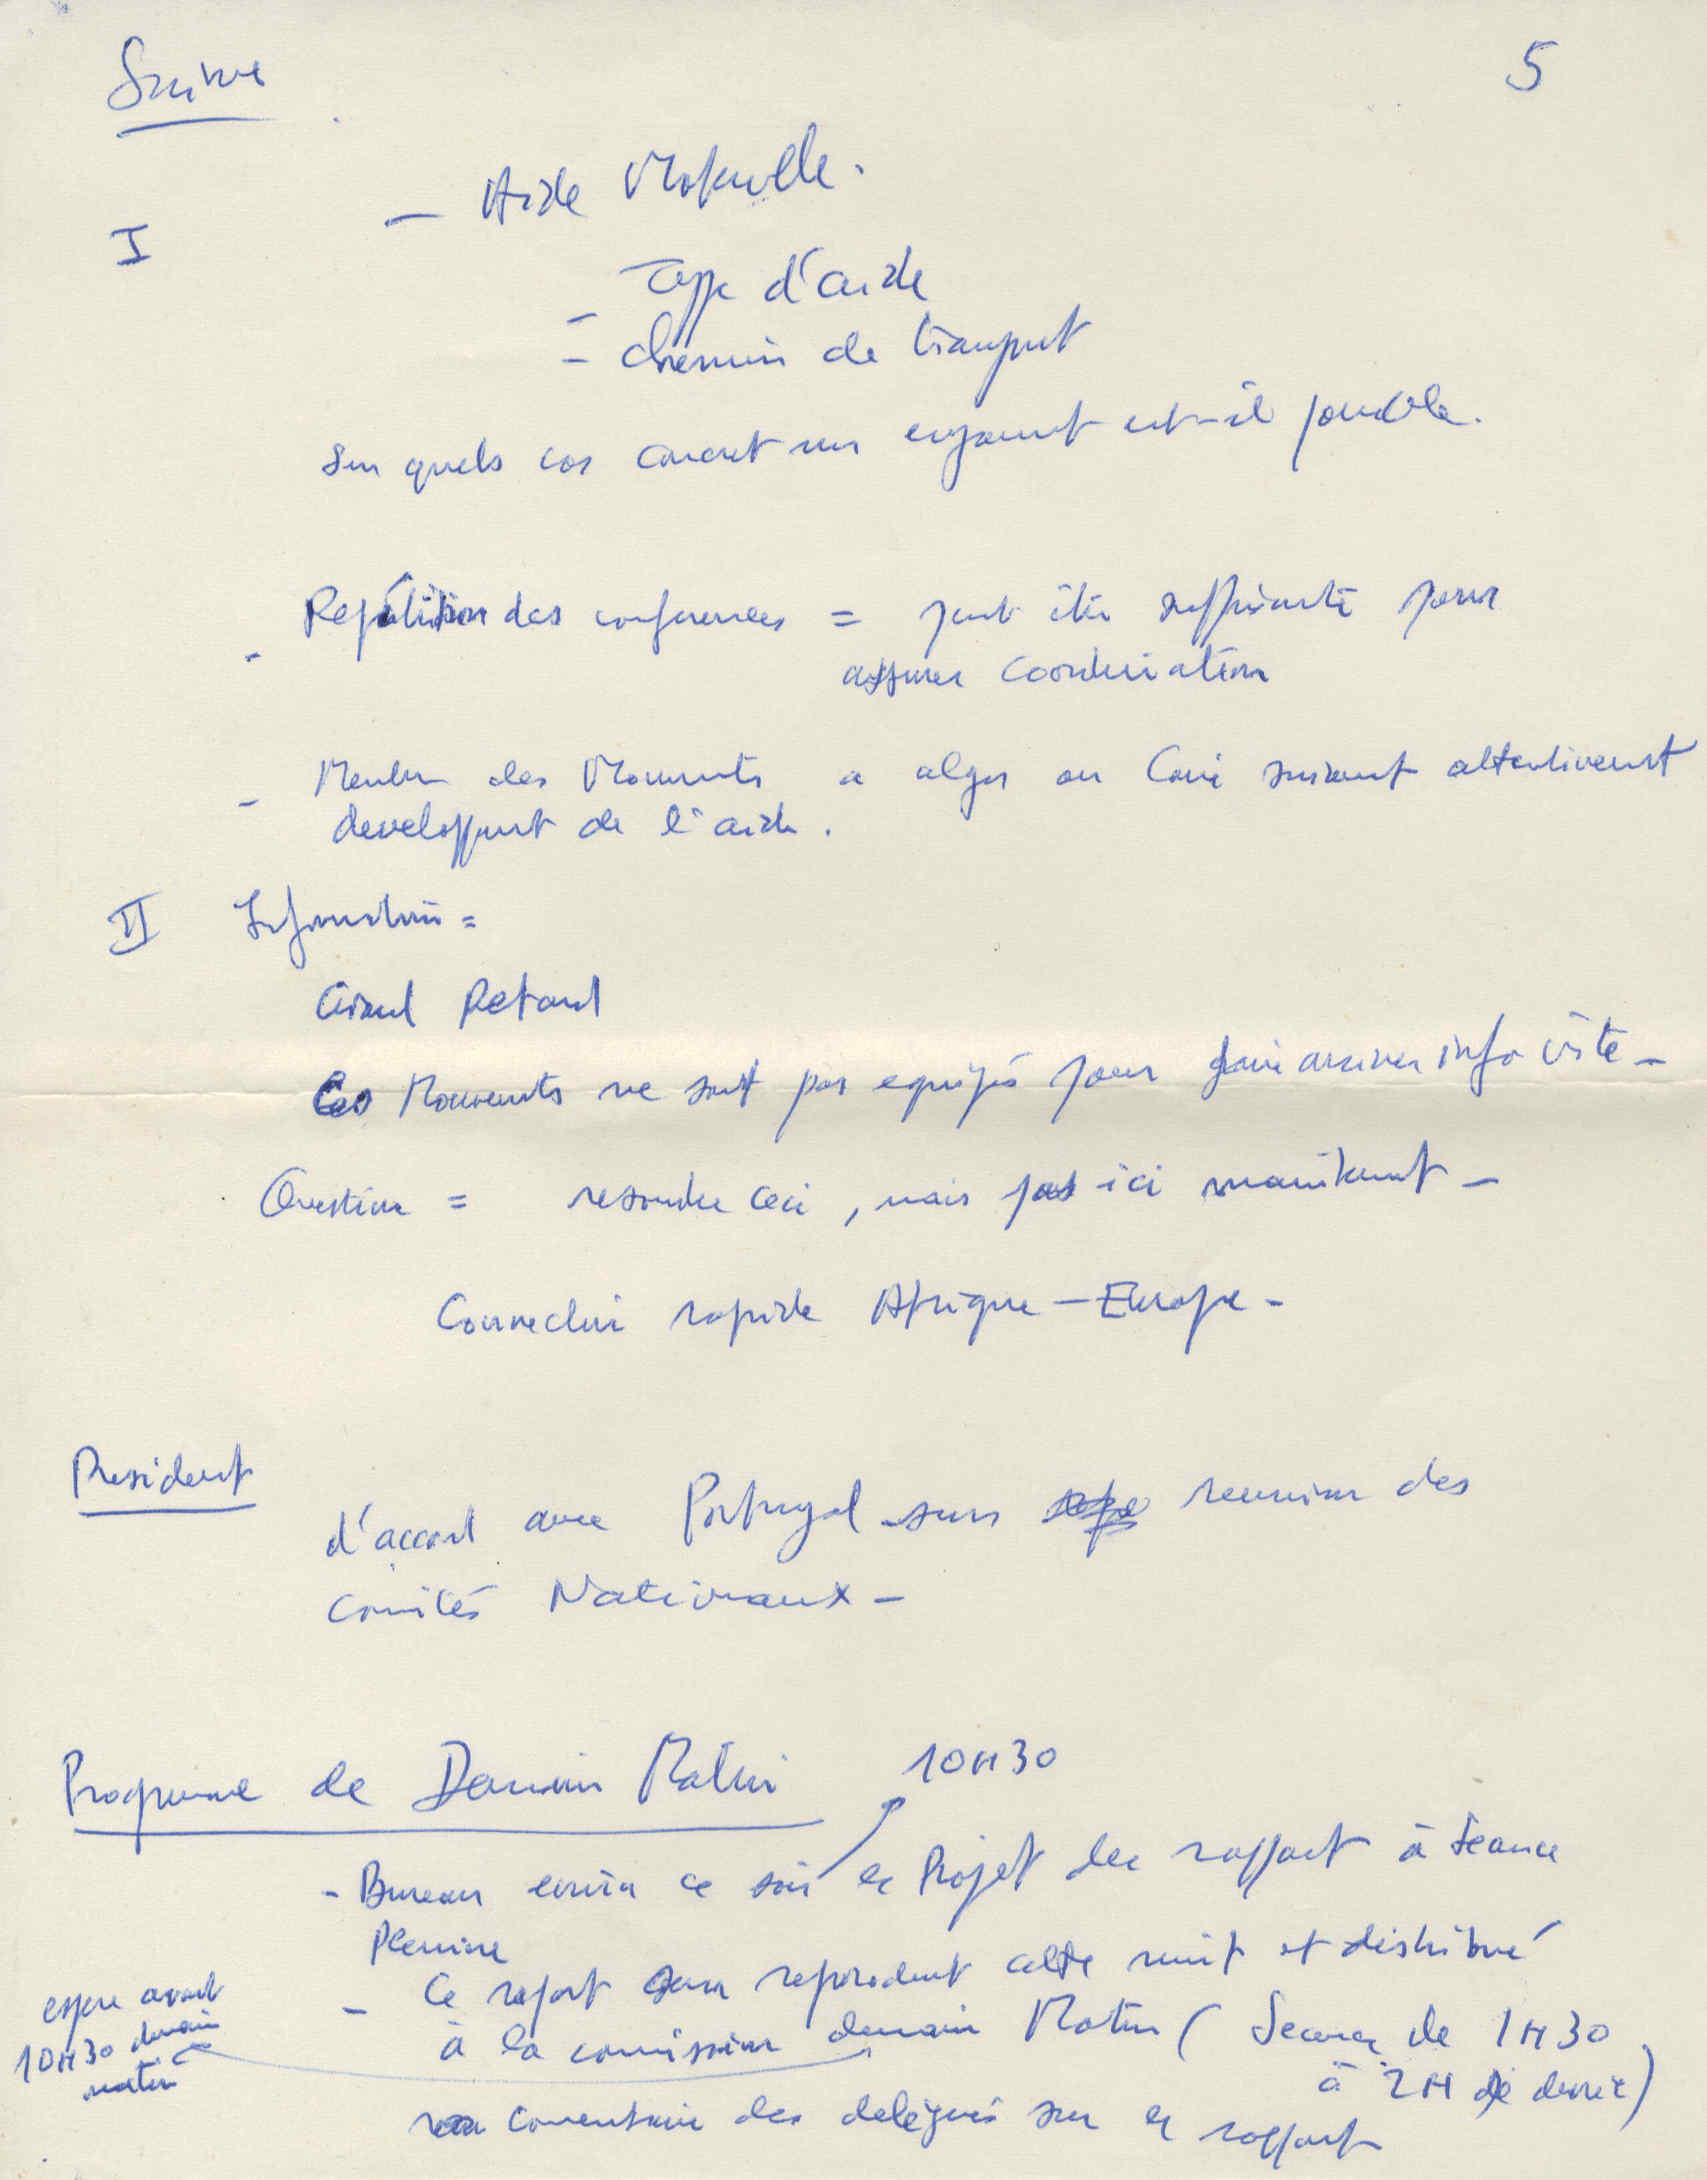 Suisse
5
I
- Aide Materielle.
- Type d'aide
- chemin de transport
Sur quels cas concret un engamt est-il possible.
- Repetition des conferences = peut être suffisante pour
assurer coordination
- Membre des Mouvmts a alger ou Caire suivent attentivemt
developpmt de l'aide.
II Information =
Grand Retard
Les Mouvemts ne sont pas equipés pour faire arriver info vite -
Question = resoudre ceci, mais pas ici maintenant -
Connection rapide Afrique - Europe -
President
d'accord avec Portugal sur reunion des
comités Nationaux -
Programme de Demain Matin 10H30
- Bureau ecrira ce soir le Projet de rapport à Seance
Pleniere
- Ce raport sera reproduit cette nuit et distribué
à la comission demain Matin ( Seance de 1H30
à 2H de durée )
espere avant
10H30 demain
matin
commentaire des delegués sur le rapport